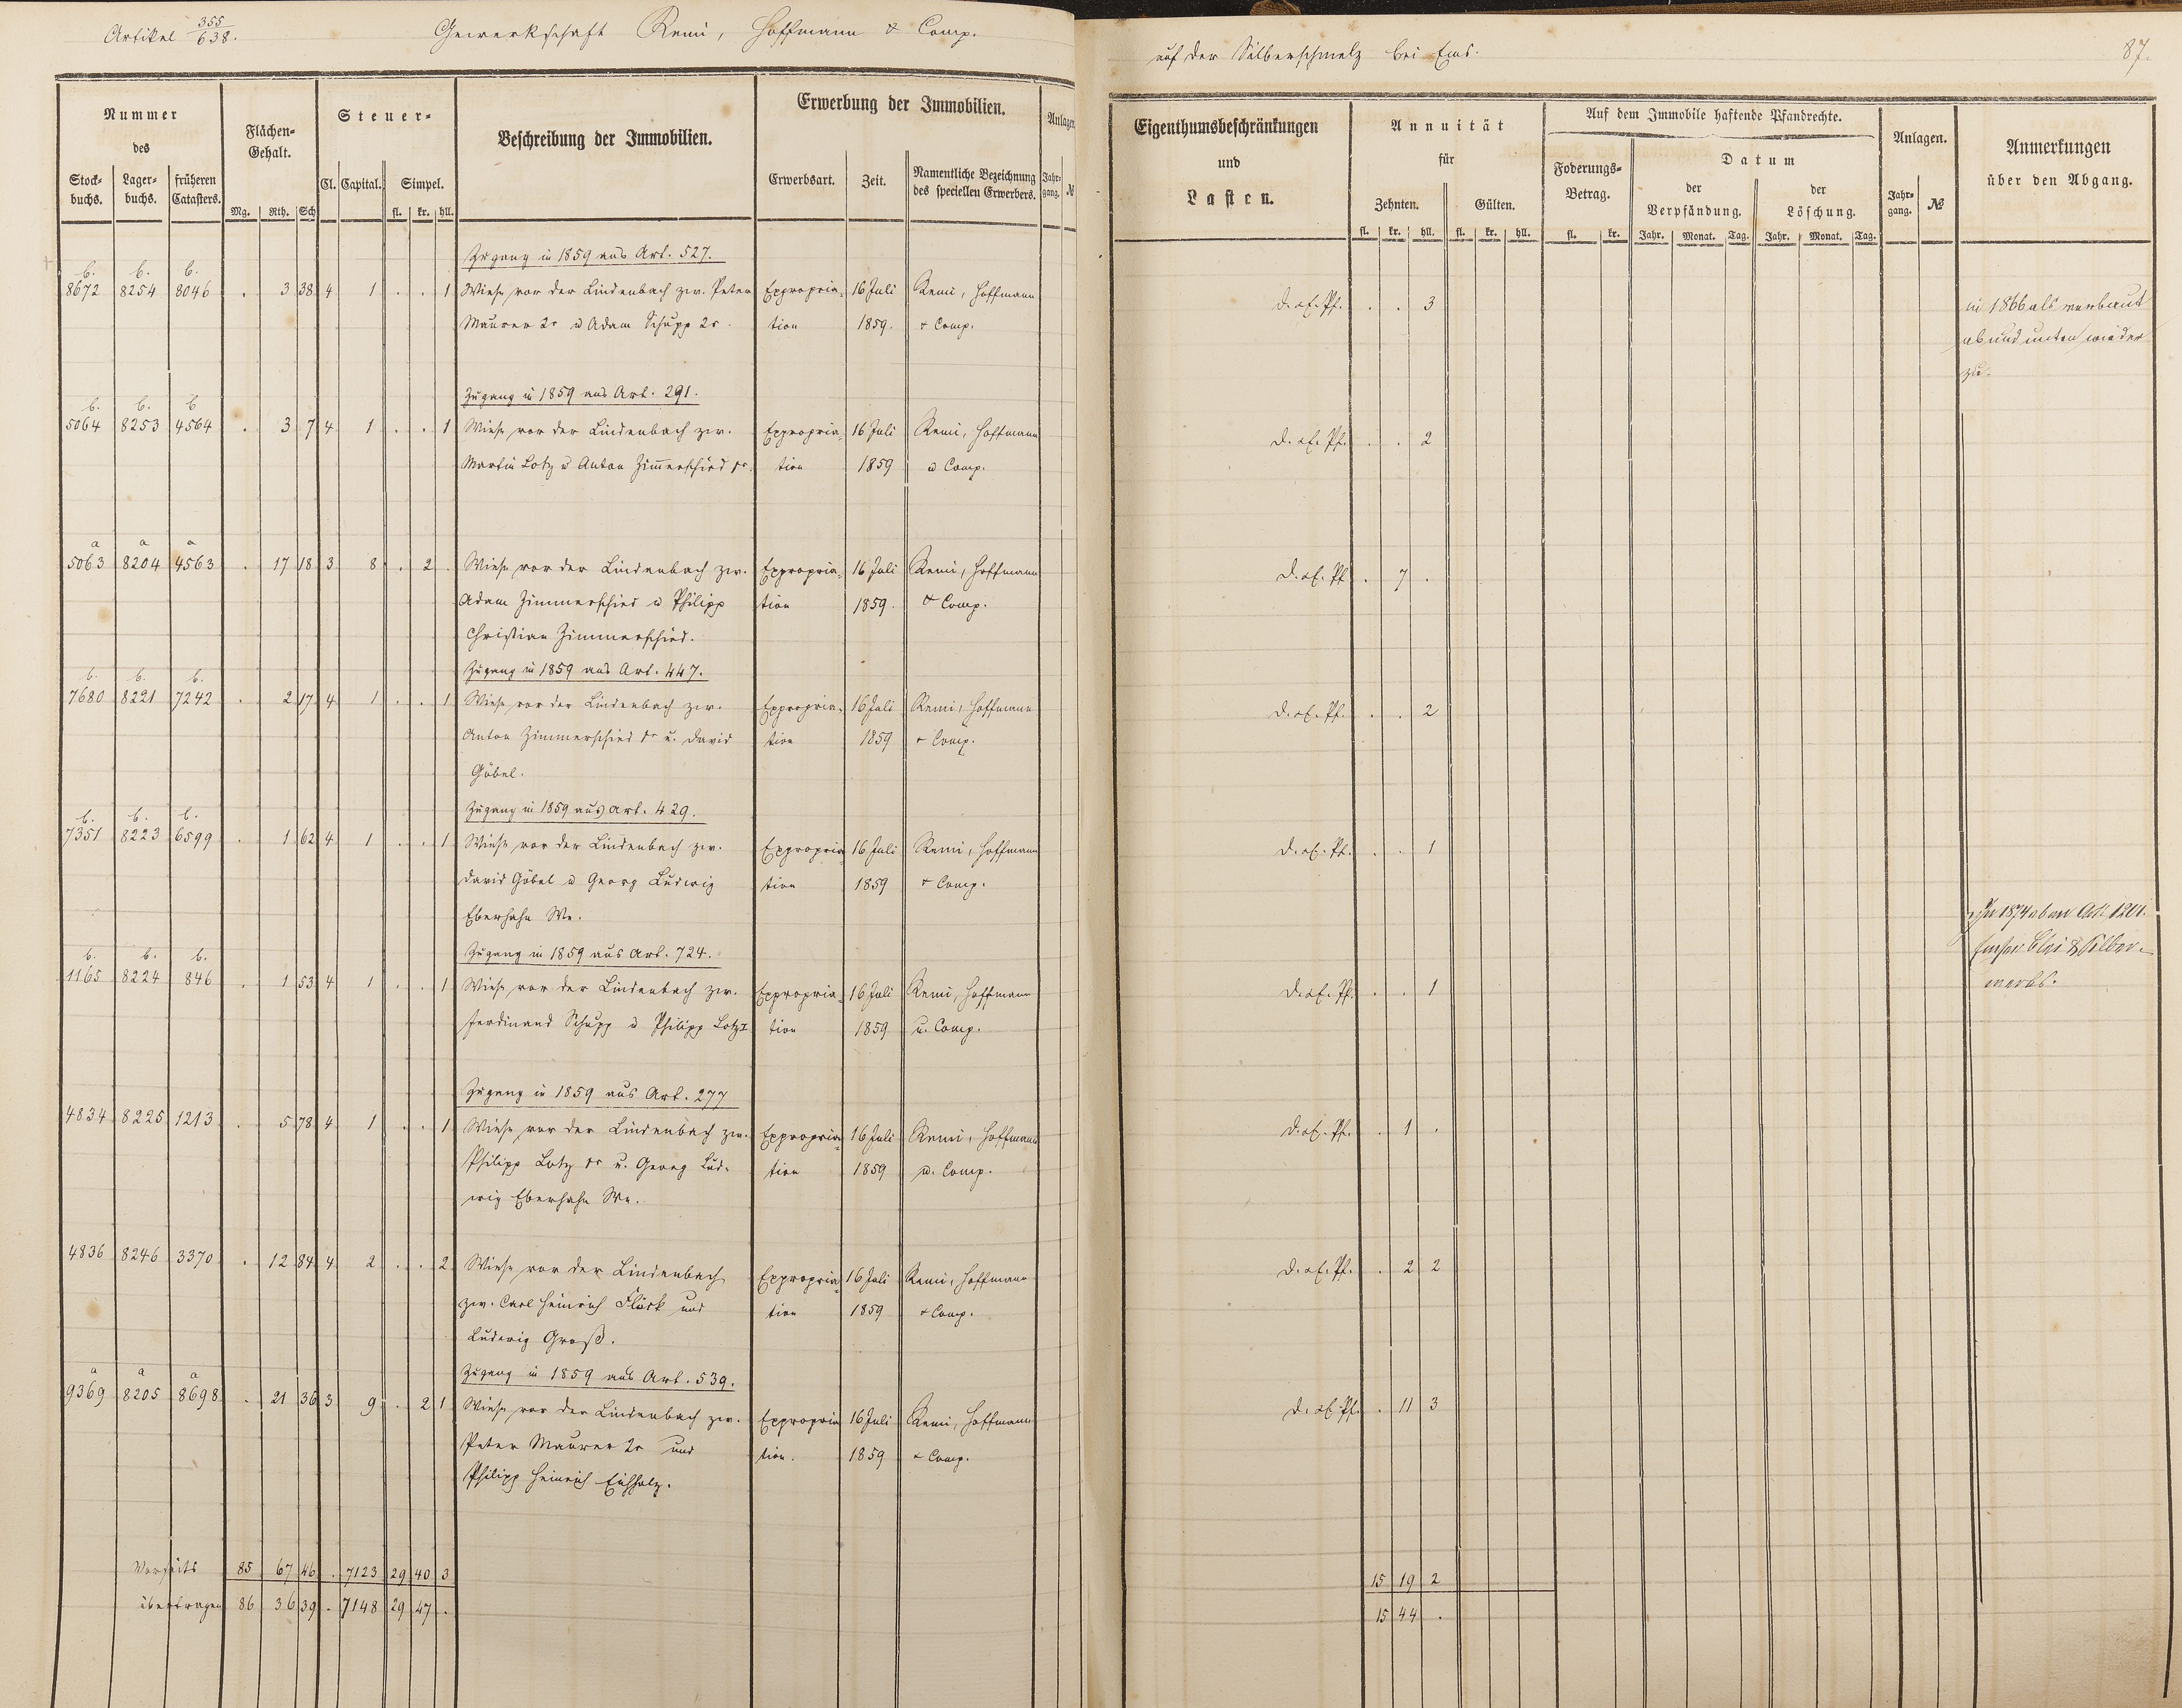 Artikel 355/638. Gewerkschaft Remi, Hoffmann & Comp. auf der Silberschmelz bei Ems. 87.
Nummer des
Stock-buchs. Lager-buchs. früheren Catasters.
Flächen-Gehalt.
Mg. Rth. Sch
Steuer-
Cl. Capital. Simpel.
fl. kr. hll.
Beschreibung der Immobilien.
Erwerbung der Immobilien.
Erwerbsart. Zeit. Namentliche Bezeichnung des speciellen Erwerbers.
Anlagen
Jahr-gang. №
Eigenthumsbeschränkungen und Lasten.
Annuität für
Zehnten. Gülten.
fl. kr. hll. fl. kr. hll.
Auf dem Immobile haftende Pfandrechte.
Foderungs-Betrag.
fl. kr.
Datum
der Verpfändung. der Löschung.
Jahr. Monat. Tag. Jahr. Monat. Tag.
Anlagen.
Jahr-gang. №
Anmerkungen über den Abgang.
Zugang in 1859 aus Art. 527.
b. b. b.
8672 8254 8046 . 3 38 4 1 . . 1 Wiese vor der Lindenbach zw. Peter Expropria- 16 Juli Remi, Hoffmann d. z. Pf. . . 3 in 1866 als verbaut
Maurer 2r u Adam Schupp 2r. tion 1859. & Comp. ab und unten wieder
zu.
Zugang in 1859 aus Art. 291.
b. b. b
5064 8253 4564 . 3 7 4 1 . . 1 Wiese vor der Lindenbach zw. Expropria- 16 Juli Remi, Hoffmann . . 2
Martin Lotz u Anton Zimmerschied 1r. tion 1859 u Comp.
a a a
5063 8204 4563 . 17 18 3 8 . 2 . Wiese vor der Lindenbach zw. Expropria- 16 Juli Remi, Hoffmann . 7 .
Adam Zimmerschied u Philipp tion 1859. & Comp.
Christian Zimmerschied.
Zugang in 1859 aus Art. 447.
b. b. b.
7680 8221 7242 . 2 17 4 1 . . 1 Wiese vor der Lindenbach zw. Expropria- 16 Juli Remi, Hoffmann . . 2
Anton Zimmerschied 1r u. David tion 1859 & Comp.
Göbel.
Zugang in 1859 aus Art. 429.
b. b. b.
7351 8223 6599 . 1 62 4 1 . . 1 Wiese vor der Lindenbach zw. Expropria- 16 Juli Remi, Hoffmann . . 1
David Göbel u Georg Ludwig tion 1859 & Comp.
Eberhahn We. In 1874 ab an Art. 1201.
Zugang in 1859 aus Art. 724. Emser Blei & Silber-
b. b. b. werk.
1165 8224 846 . 1 53 4 1 . . 1 Wiese vor der Lindenbach zw. Expropria- 16 Juli Remi, Hoffmann . . 1
Ferdinand Schupp u Philipp Lotz tion 1859 u. Comp.
Zugang in 1859 aus Art. 277
4834 8225 1213 . 5 78 4 1 . . 1 Wiese vor der Lindenbach zw. Expropria- 16 Juli Remi, Hoffmann . 1 .
Philipp Lotz 1r u. Georg Lud- tion 1859 u. Comp.
wig Eberhahn We.
4836 8246 3370 . 12 84 4 2 . . 2 Wiese vor der Lindenbach Expropria- 16 Juli Remi, Hoffmann . 2 2
zw. Carl Heinrich Flöck und tion 1859 & Comp.
Ludwig Groß.
Zugang in 1859 aus Art. 539.
a a a
9369 8205 8698 . 21 36 3 9 . 2 1 Wiese vor der Lindenbach zw. Expropria 16 Juli Remi, Hoffmann . 11 3
Peter Maurer 2r und tion. 1859 & Comp.
Philipp Heinrich Eichholz.
Vorseits 85 67 46 . 7123 29 40 3 15 19 2
übertragen 86 36 39 . 7148 29 47 . 15 44 .